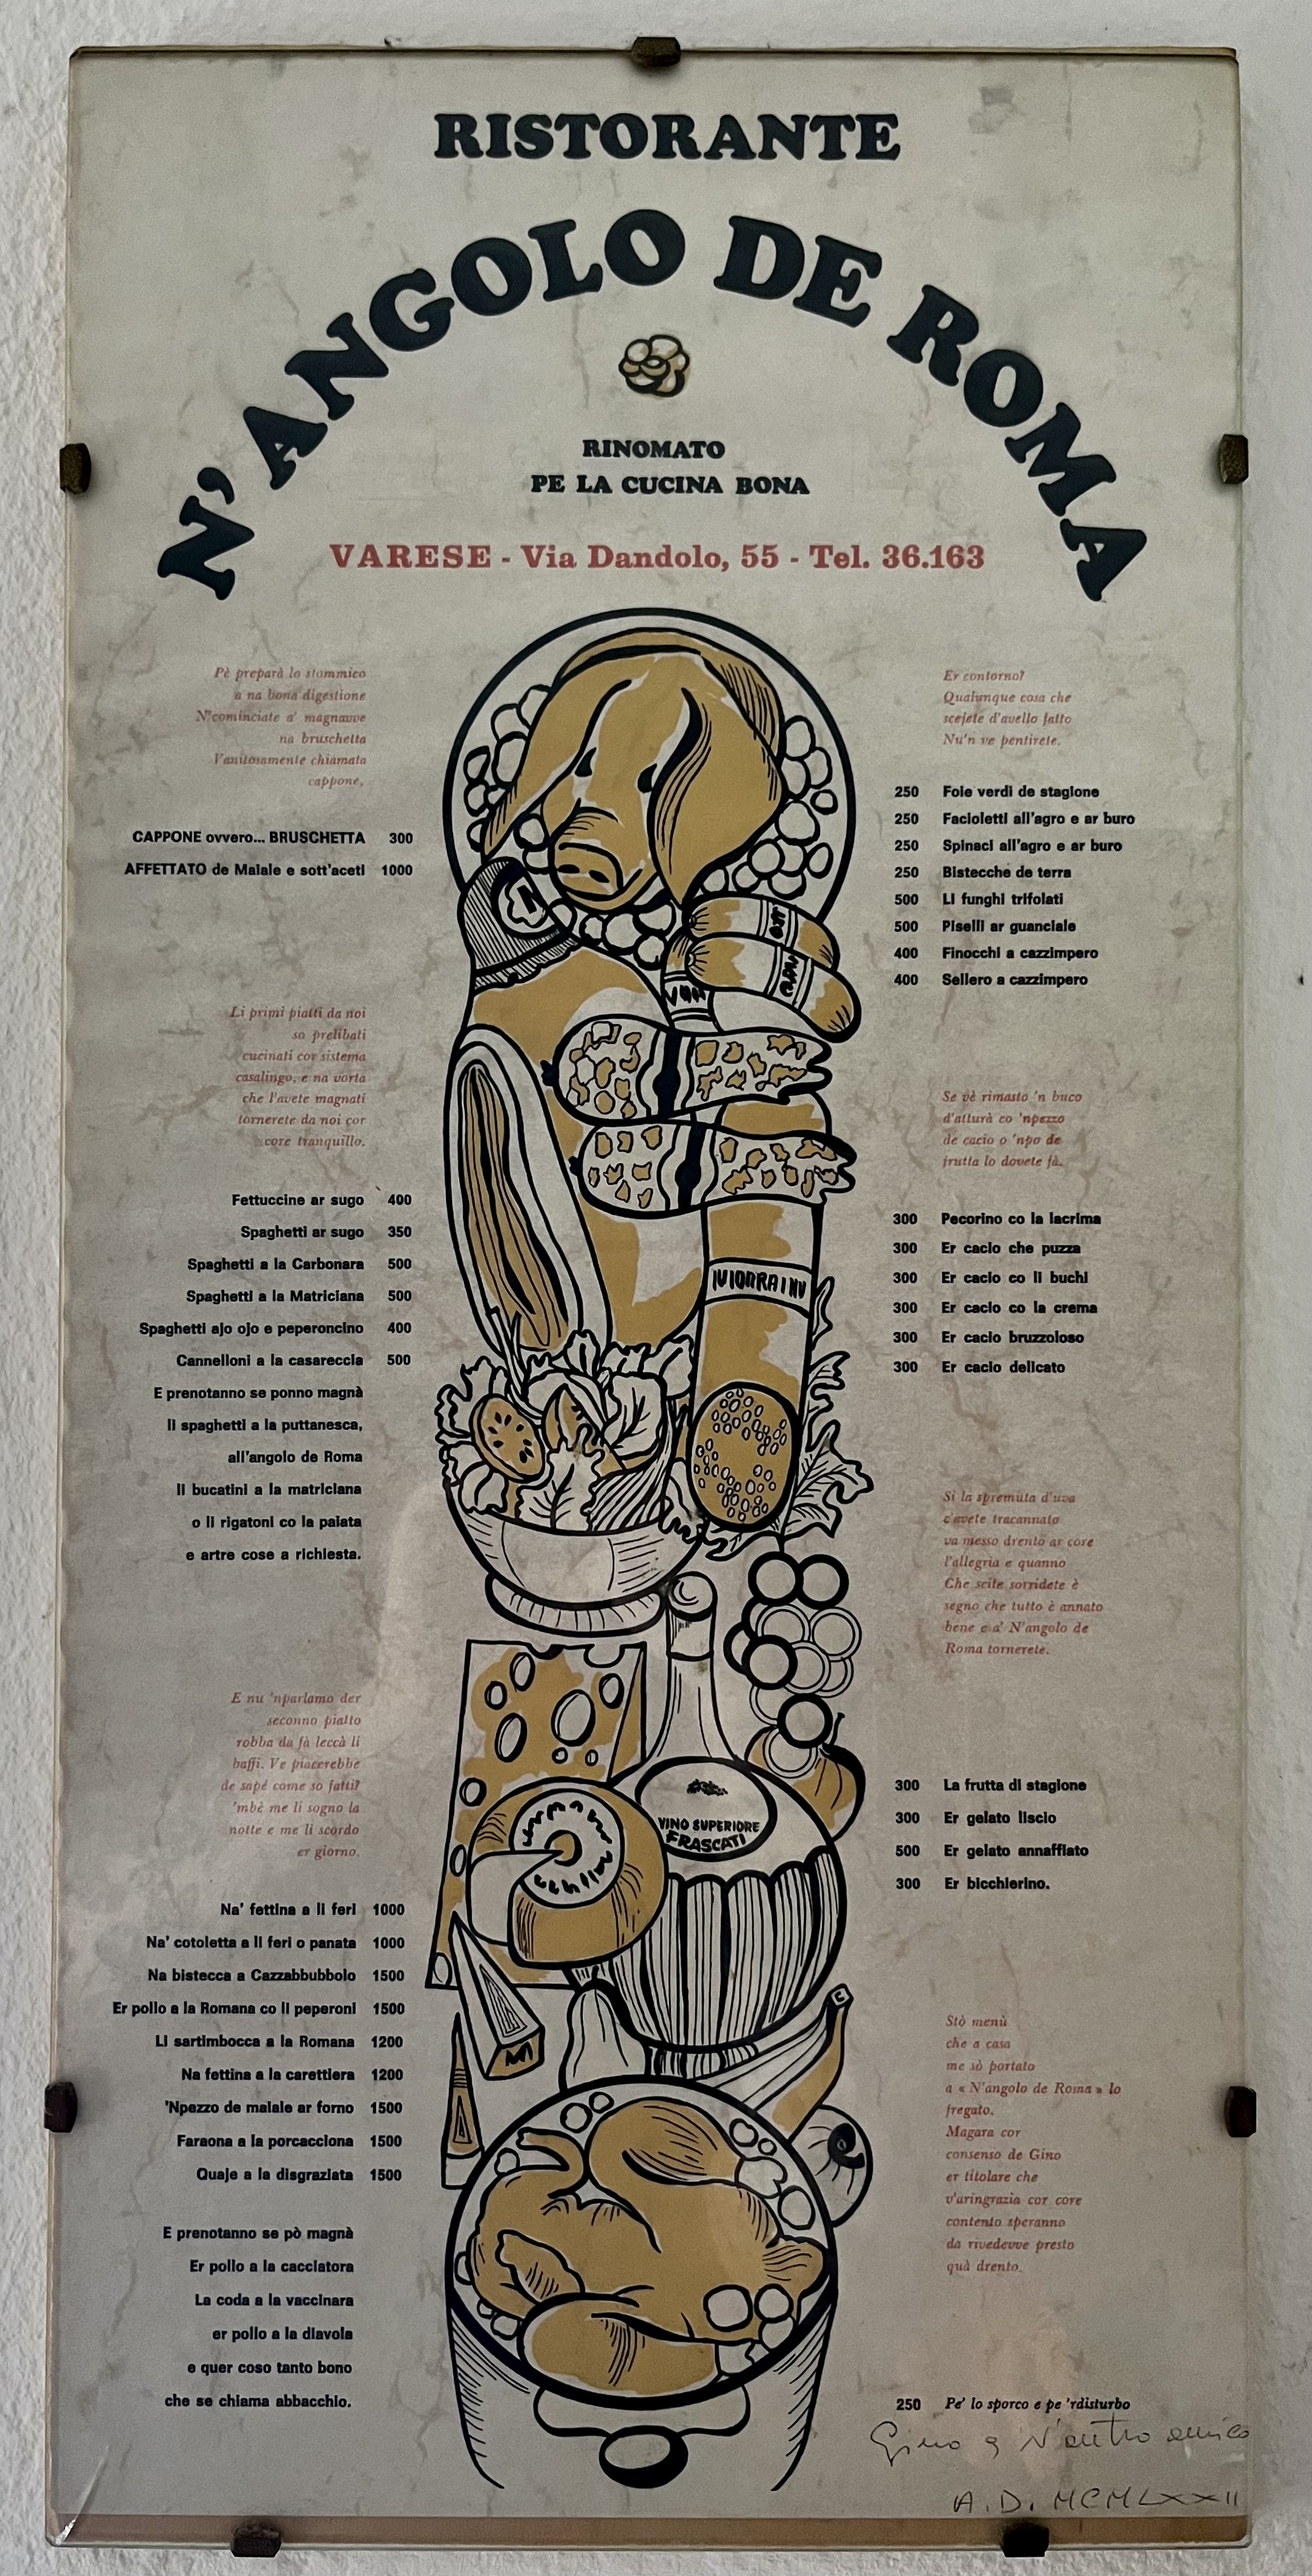 RISTORANTE
N' ANGOLO DE ROMA
RINOMATO
PE LA CUCINA BONA
VARESE - Via Dandolo, 55 - Tel. 36.163
Pè preparà lo stommico
a na bona digestione
N'cominciate a' magnavve
na bruschetta
Vanitosamente chiamata
cappone,
CAPPONE ovvero... BRUSCHETTA 300
AFFETTATO de Maiale e sott'aceti 1000
Li primi piatti da noi
so prelibati
cucinati cor sistema
casalingo, e na vorta
che l'avete magnati
tornerete da noi cor
core tranquillo.
Fettuccine ar sugo 400
Spaghetti ar sugo 350
Spaghetti a la Carbonara 500
Spaghetti a la Matriciana 500
Spaghetti ajo ojo e peperoncino 400
Cannelloni a la casareccia 500
E prenotanno se ponno magnà
li spaghetti a la puttanesca,
all'angolo de Roma
li bucatini a la matriciana
o li rigatoni co la paiata
e artre cose a richiesta.
E nu 'nparlamo der
seconno piatto
robba da fà leccà li
baffi. Ve piacerebbe
de sapé come so fatti?
'mbè me li sogno la
notte e me li scordo
er giorno.
Na' fettina a li feri 1000
Na' cotoletta a li feri o panata 1000
Na bistecca a Cazzabbubbolo 1500
Er pollo a la Romana co li peperoni 1500
Li sartimbocca a la Romana 1200
Na fettina a la carettiera 1200
'Npezzo de maiale ar forno 1500
Faraona a la porcacciona 1500
Quaje a la disgraziata 1500
E prenotanno se pò magnà
Er pollo a la cacciatora
La coda a la vaccinara
er pollo a la diavola
e quer coso tanto bono
che se chiama abbacchio.
VINO SUPERIORE
FRASCATI
Er contorno?
Qualunque cosa che
scejete d'avello fatto
Nu'n ve pentirete.
250 Foie verdi de stagione
250 Facioletti all'agro e ar buro
250 Spinaci all'agro e ar buro
250 Bistecche de terra
500 Li funghi trifolati
500 Piselli ar guanciale
400 Finocchi a cazzimpero
400 Sellero a cazzimpero
Se vè rimasto 'n buco
d'atturà co 'npezzo
de cacio o 'npo de
frutta lo dovete fà.
300 Pecorino co la lacrima
300 Er cacio che puzza
300 Er cacio co li buchi
300 Er cacio co la crema
300 Er cacio bruzzoloso
300 Er cacio delicato
Si la spremuta d'uva
c'avete tracannato
va messo drento ar core
l'allegria e quanno
Che scite sorridete è
segno che tutto è annato
bene e a' N'angolo de
Roma tornerete.
300 La frutta di stagione
300 Er gelato liscio
500 Er gelato annaffiato
300 Er bicchierino.
Stò menù
che a casa
me sò portato
a « N'angolo de Roma » lo
fregato.
Magara cor
consenso de Gino
er titolare che
v'aringrazia cor core
contento speranno
da rivedevve presto
quà drento.
250 Pe' lo sporco e pe 'rdisturbo
Gino e N'antro amico
A.D. MCMLXXII